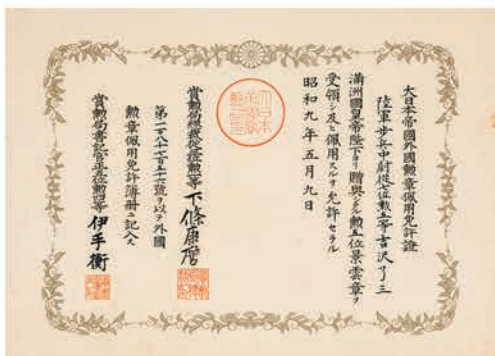 大日本帝國外國勲章佩用免許證
陸軍歩兵中尉從七位勲五等吉沢了三
滿洲國皇帝陛下ヨリ贈與シタル勲五位景雲章ヲ
受領シ及ヒ佩用スルヲ允許セラル
昭和九年五月九日
賞勲局總裁從三位勲二等下條康麿
號ヲ以テ外國
勲章佩用免許簿冊ニ記入ス
賞勲局書記官正五位勲四等伊手衡